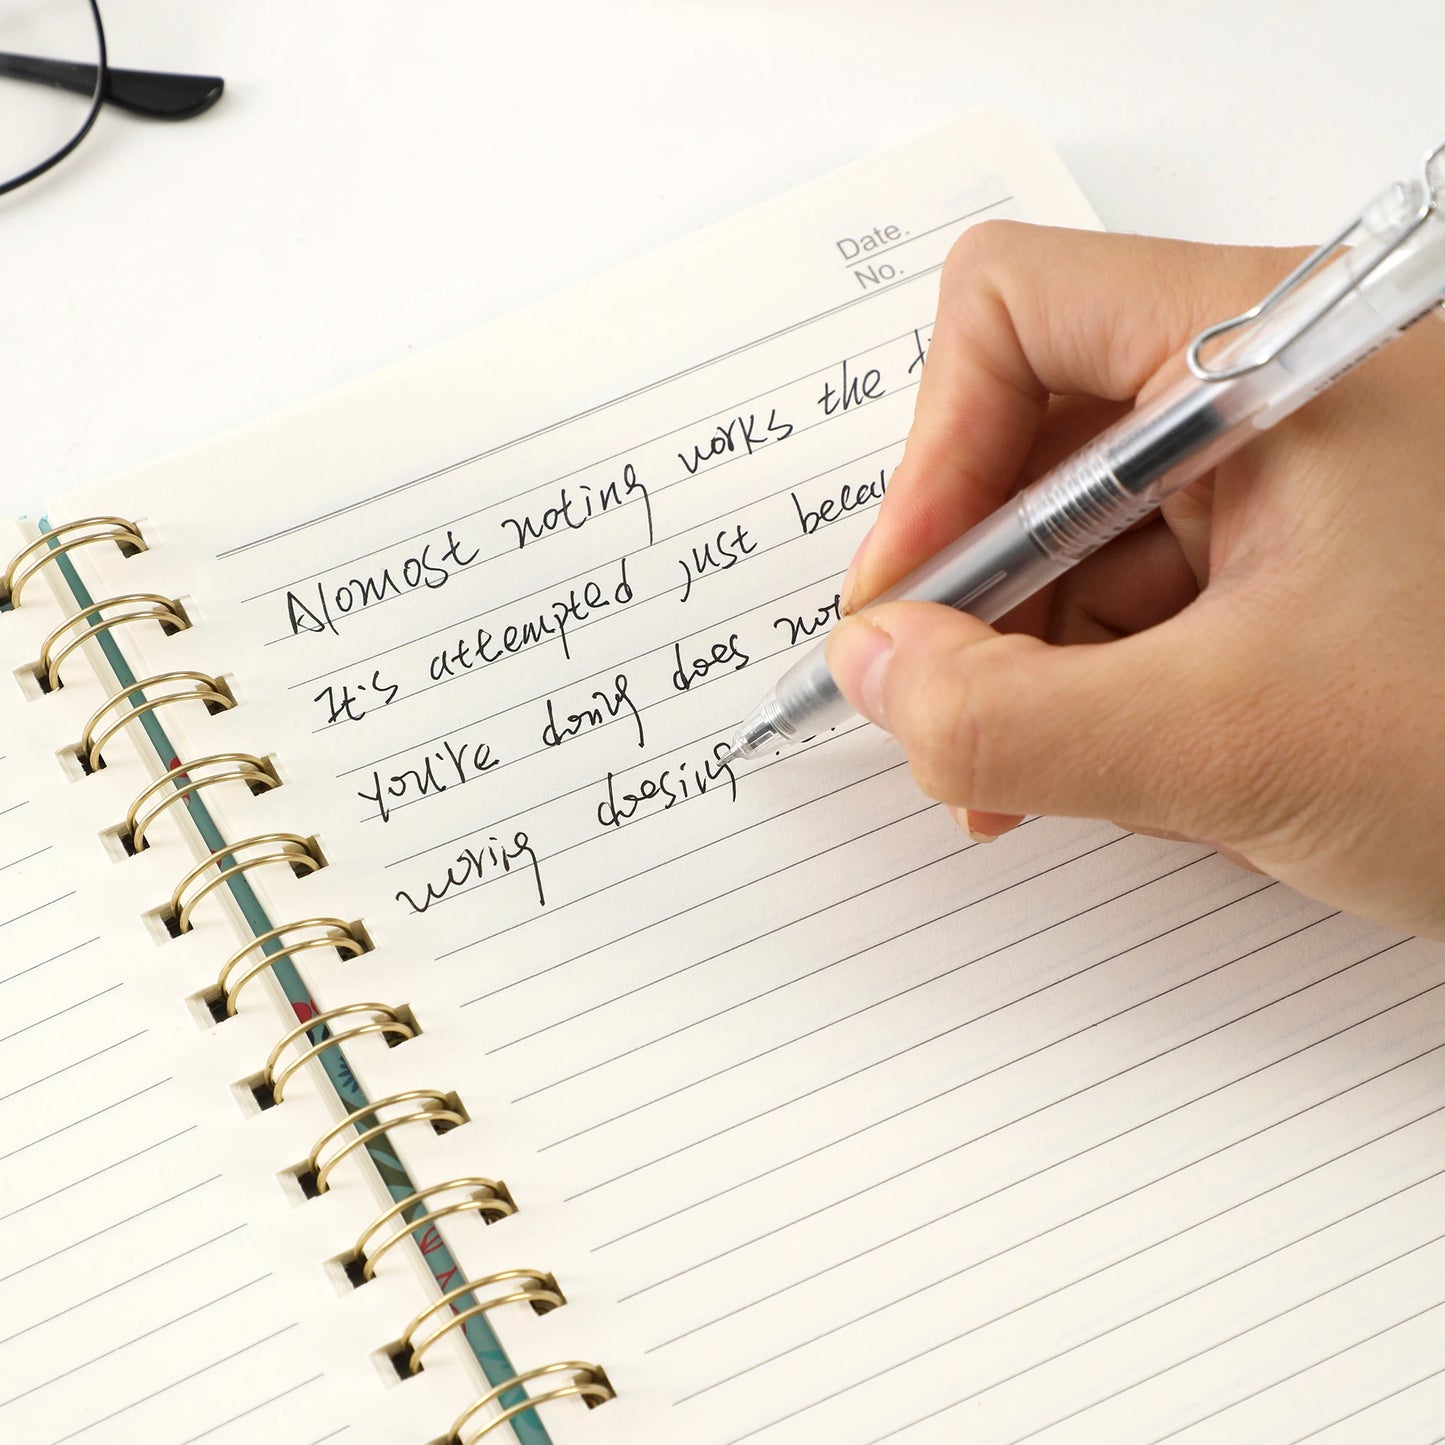 Date.
No.
Alomost noting works the
It's attempted just becau
you're doing does not
woring doesing